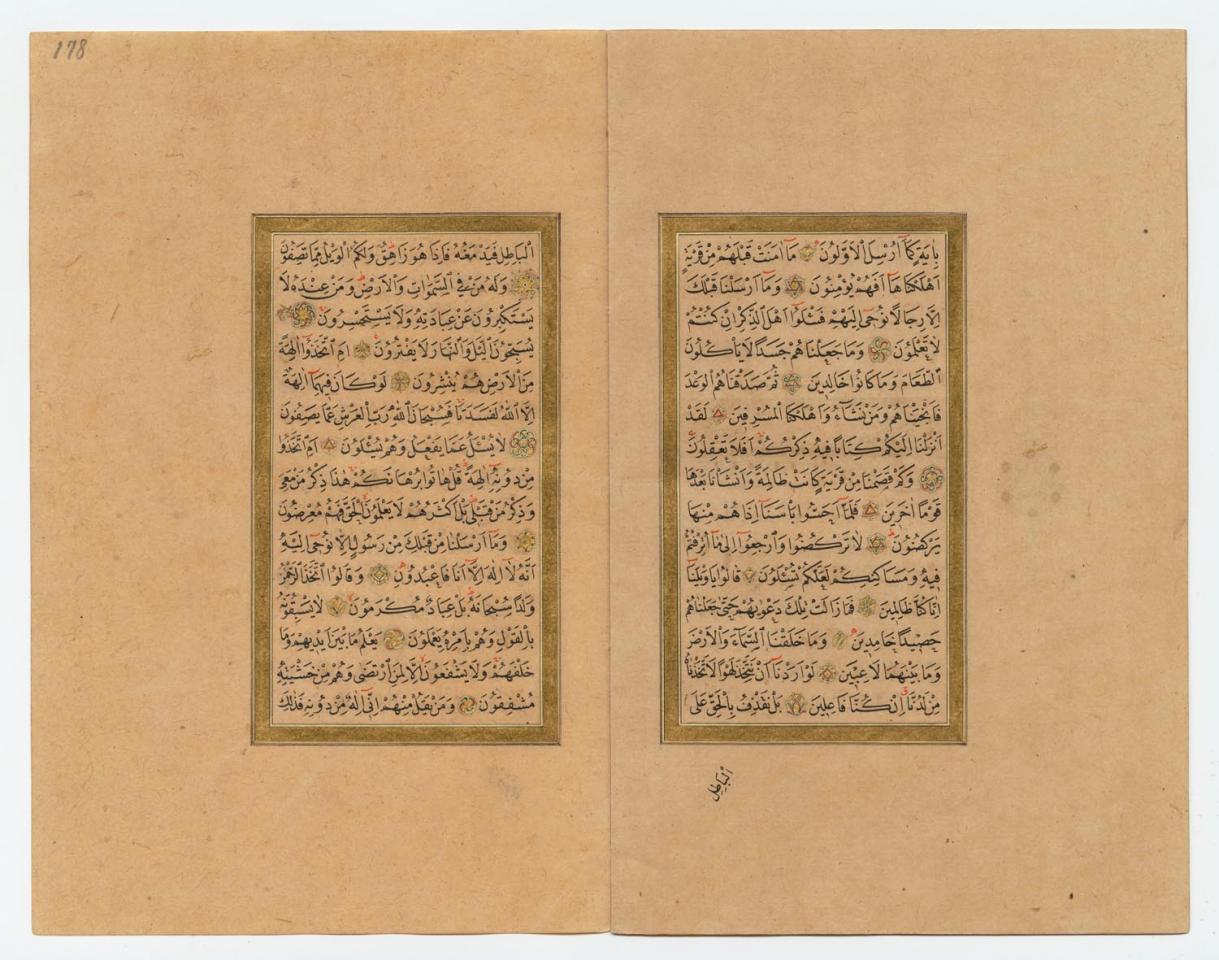 بِاٰيَةٍ كَمَٓا اُرْسِلَ الْاَوَّلُونَ مَٓا اٰمَنَتْ قَبْلَهُمْ مِنْ قَرْيَةٍ
اَهْلَكْنَاهَا اَفَهُمْ يُؤْمِنُونَ وَمَٓا اَرْسَلْنَا قَبْلَكَ
اِلَّا رِجَالًا نُوحِٓى اِلَيْهِمْ فَسْئَلُٓوا اَهْلَ الذِّكْرِ اِنْ كُنْتُمْ
لَا تَعْلَمُونَ وَمَا جَعَلْنَاهُمْ جَسَدًا لَا يَأْكُلُونَ
الطَّعَامَ وَمَا كَانُوا خَالِدِينَ ثُمَّ صَدَقْنَاهُمُ الْوَعْدَ
فَاَنْجَيْنَاهُمْ وَمَنْ نَشَٓاءُ وَاَهْلَكْنَا الْمُسْرِفِينَ لَقَدْ
اَنْزَلْنَٓا اِلَيْكُمْ كِتَابًا فِيهِ ذِكْرُكُمْ اَفَلَا تَعْقِلُونَ
وَكَمْ قَصَمْنَا مِنْ قَرْيَةٍ كَانَتْ ظَالِمَةً وَاَنْشَأْنَا بَعْدَهَا
قَوْمًا اٰخَرِينَ فَلَمَّٓا اَحَسُّوا بَأْسَنَٓا اِذَا هُمْ مِنْهَا
يَرْكُضُونَ لَا تَرْكُضُوا وَارْجِعُٓوا اِلٰى مَٓا اُتْرِفْتُمْ
فِيهِ وَمَسَاكِنِكُمْ لَعَلَّكُمْ تُسْئَلُونَ قَالُوا يَا وَيْلَنَٓا
اِنَّا كُنَّا ظَالِمِينَ فَمَا زَالَتْ تِلْكَ دَعْوٰيهُمْ حَتّٰى جَعَلْنَاهُمْ
حَصِيدًا خَامِدِينَ وَمَا خَلَقْنَا السَّمَٓاءَ وَالْاَرْضَ
وَمَا بَيْنَهُمَا لَاعِبِينَ لَوْ اَرَدْنَٓا اَنْ نَتَّخِذَ لَهْوًا لَاتَّخَذْنَاهُ
مِنْ لَدُنَّٓا اِنْ كُنَّا فَاعِلِينَ بَلْ نَقْذِفُ بِالْحَقِّ عَلَى
الْبَاطِلِ
178
الْبَاطِلِ فَيَدْمَغُهُ فَاِذَا هُوَ زَاهِقٌ وَلَكُمُ الْوَيْلُ مِمَّا تَصِفُونَ
وَلَهُ مَنْ فِي السَّمٰوَاتِ وَالْاَرْضِ وَمَنْ عِنْدَهُ لَا
يَسْتَكْبِرُونَ عَنْ عِبَادَتِهِ وَلَا يَسْتَحْسِرُونَ
يُسَبِّحُونَ الَّيْلَ وَالنَّهَارَ لَا يَفْتُرُونَ اَمِ اتَّخَذُٓوا اٰلِهَةً
مِنَ الْاَرْضِ هُمْ يُنْشِرُونَ لَوْ كَانَ فِيهِمَٓا اٰلِهَةٌ
اِلَّا اللّٰهُ لَفَسَدَتَا فَسُبْحَانَ اللّٰهِ رَبِّ الْعَرْشِ عَمَّا يَصِفُونَ
لَا يُسْئَلُ عَمَّا يَفْعَلُ وَهُمْ يُسْئَلُونَ اَمِ اتَّخَذُوا
مِنْ دُونِهِٓ اٰلِهَةً قُلْ هَاتُوا بُرْهَانَكُمْ هٰذَا ذِكْرُ مَنْ مَعِيَ
وَذِكْرُ مَنْ قَبْلِي بَلْ اَكْثَرُهُمْ لَا يَعْلَمُونَ الْحَقَّ فَهُمْ مُعْرِضُونَ
وَمَٓا اَرْسَلْنَا مِنْ قَبْلِكَ مِنْ رَسُولٍ اِلَّا نُوحِٓى اِلَيْهِ
اَنَّهُ لَٓا اِلٰهَ اِلَّٓا اَنَا فَاعْبُدُونِ وَقَالُوا اتَّخَذَ الرَّحْمٰنُ
وَلَدًا سُبْحَانَهُ بَلْ عِبَادٌ مُكْرَمُونَ لَا يَسْبِقُونَهُ
بِالْقَوْلِ وَهُمْ بِاَمْرِهِ يَعْمَلُونَ يَعْلَمُ مَا بَيْنَ اَيْدِيهِمْ وَمَا
خَلْفَهُمْ وَلَا يَشْفَعُونَ اِلَّا لِمَنِ ارْتَضٰى وَهُمْ مِنْ خَشْيَتِهِ
مُشْفِقُونَ وَمَنْ يَقُلْ مِنْهُمْ اِنِّٓى اِلٰهٌ مِنْ دُونِهِ فَذٰلِكَ